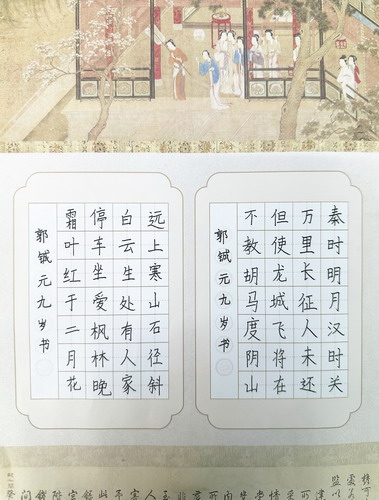 秦时明月汉时关
万里长征人未还
但使龙城飞将在
不教胡马度阴山
郭铖元九岁书
远上寒山石径斜
白云生处有人家
停车坐爱枫林晚
霜叶红于二月花
郭铖元九岁书